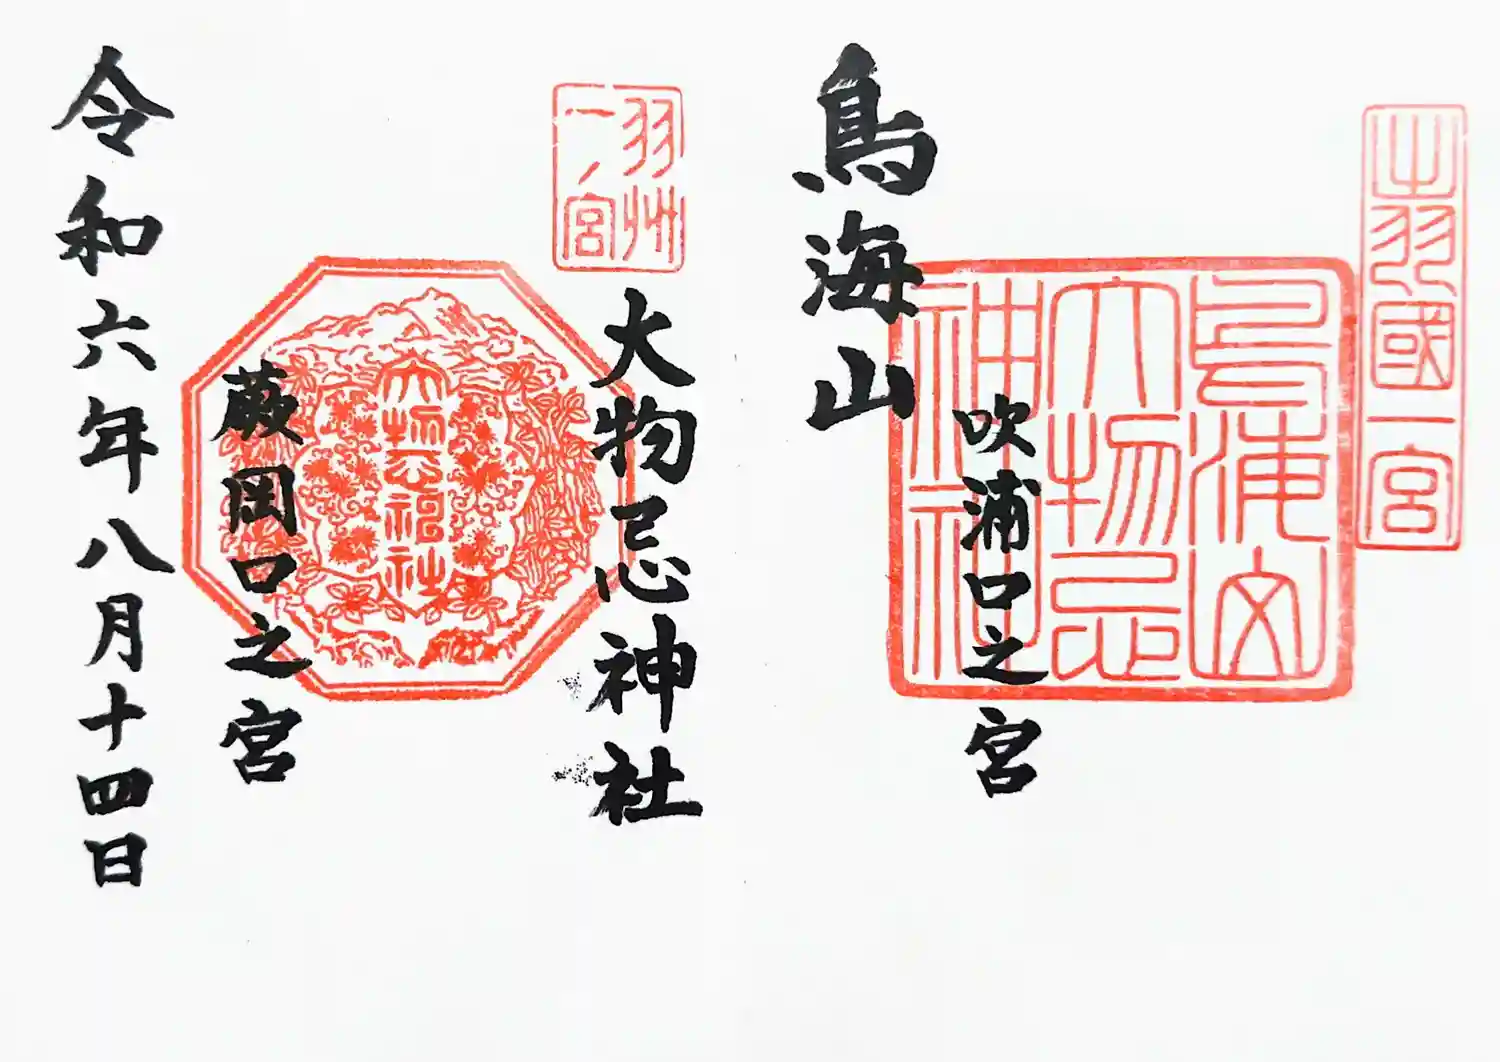 出羽國一宮
鳥海山大物忌神社
鳥海山
吹浦口之宮
羽州一ノ宮
大物忌神社
大物忌神社
蕨岡口之宮
令和六年八月十四日